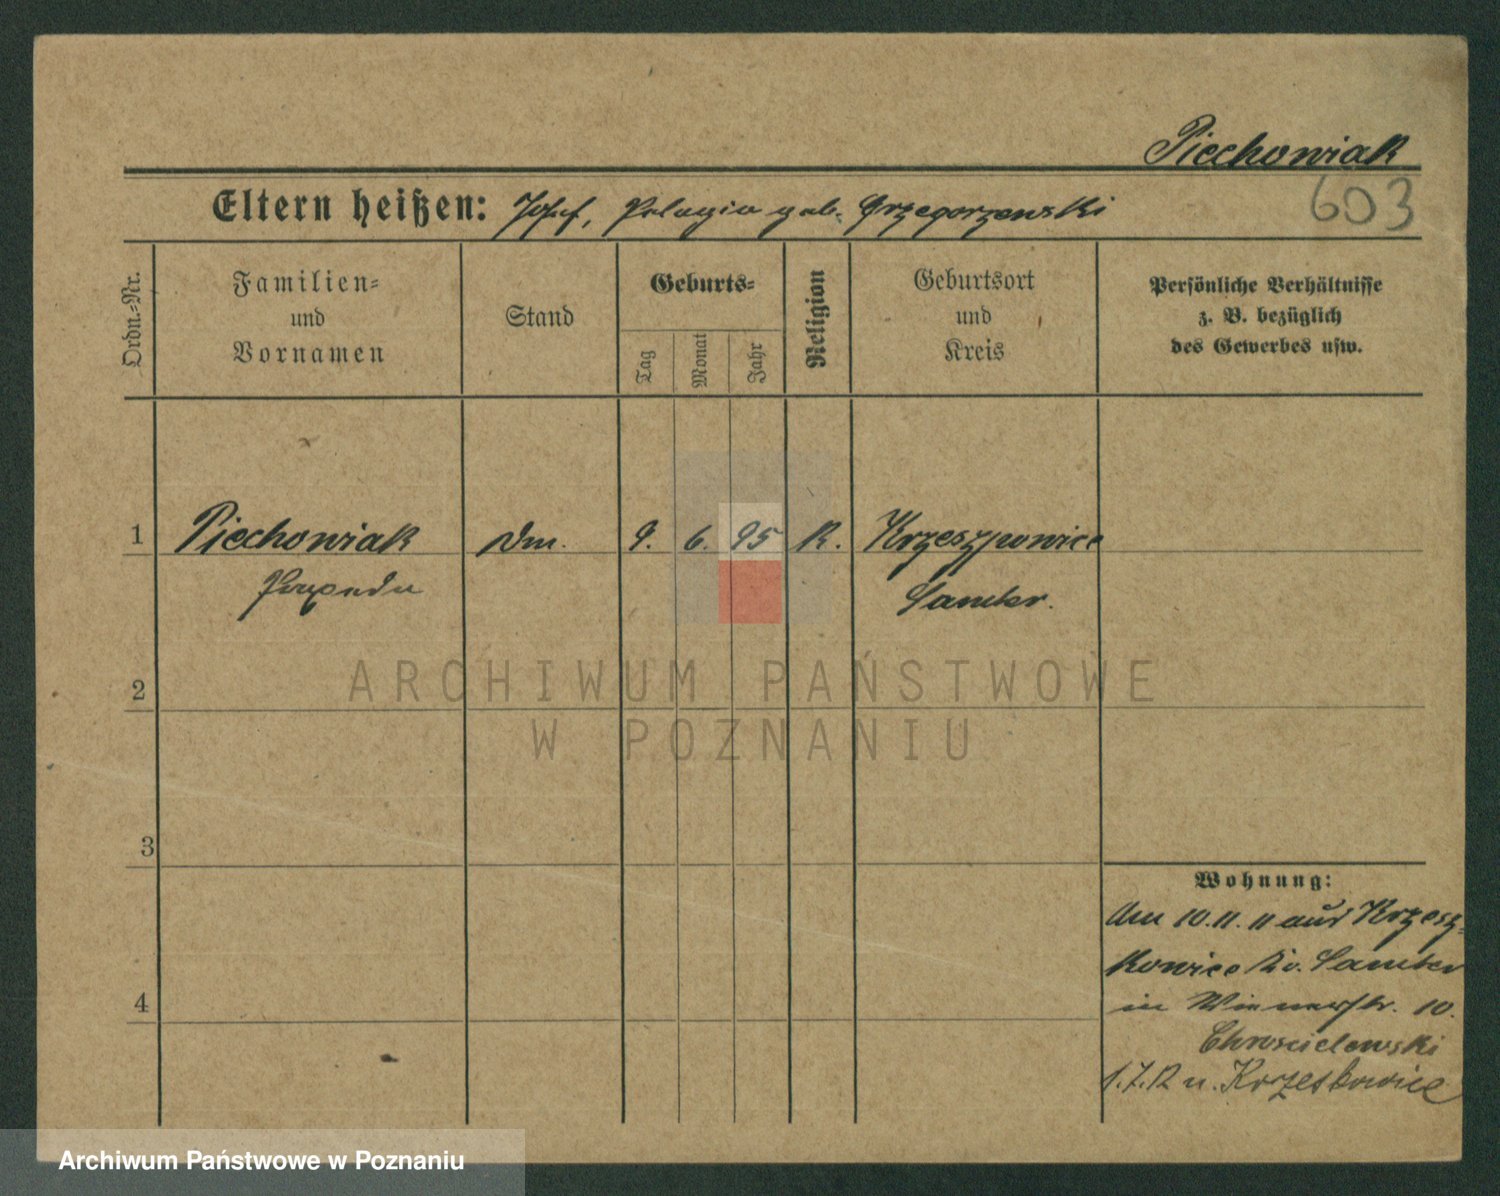 Piechowiak
603
Eltern heißen: Josef, Pelagia geb. Grzegorzewski
Ordn.-Nr.
Familien-
und
Vornamen
Stand
Geburts-
Tag
Monat
Jahr
Religion
Geburtsort
und
Kreis
Persönliche Verhältnisse
z. B. bezüglich
des Gewerbes usw.
1 Piechowiak Dm. 9. 6. 95 K. Krzeszkowice
Samter.
2
3
4
Wohnung:
Am 10.11.11 aus Krzesz-
kowice Kr. Samter
in Wienerstr. 10.
Chroscielewski
1.7.12 n. Krzeskowice
ARCHIWUM PAŃSTWOWE
W POZNANIU
Archiwum Państwowe w Poznaniu